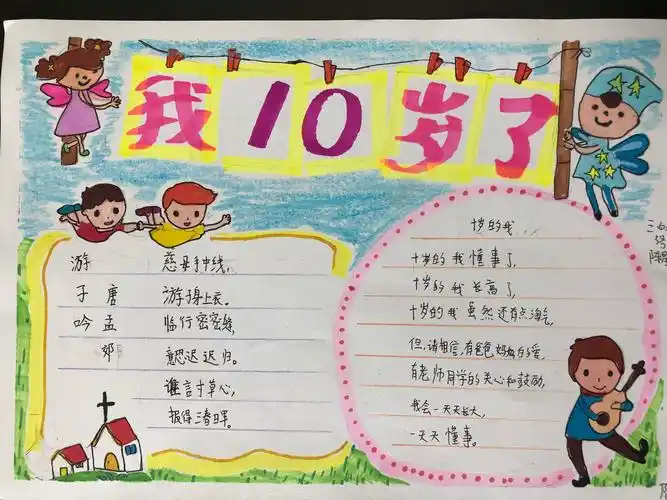 我10岁了
游子吟
唐 孟郊
慈母手中线,
游子身上衣。
临行密密缝,
意恐迟迟归。
谁言寸草心,
报得三春晖。
十岁的我
十岁的我懂事了,
十岁的我长高了,
十岁的我虽然还有点淘气,
但,请相信,有爸爸妈妈的爱,
有老师同学的关心和鼓励,
我会一天天长大,
一天天懂事。